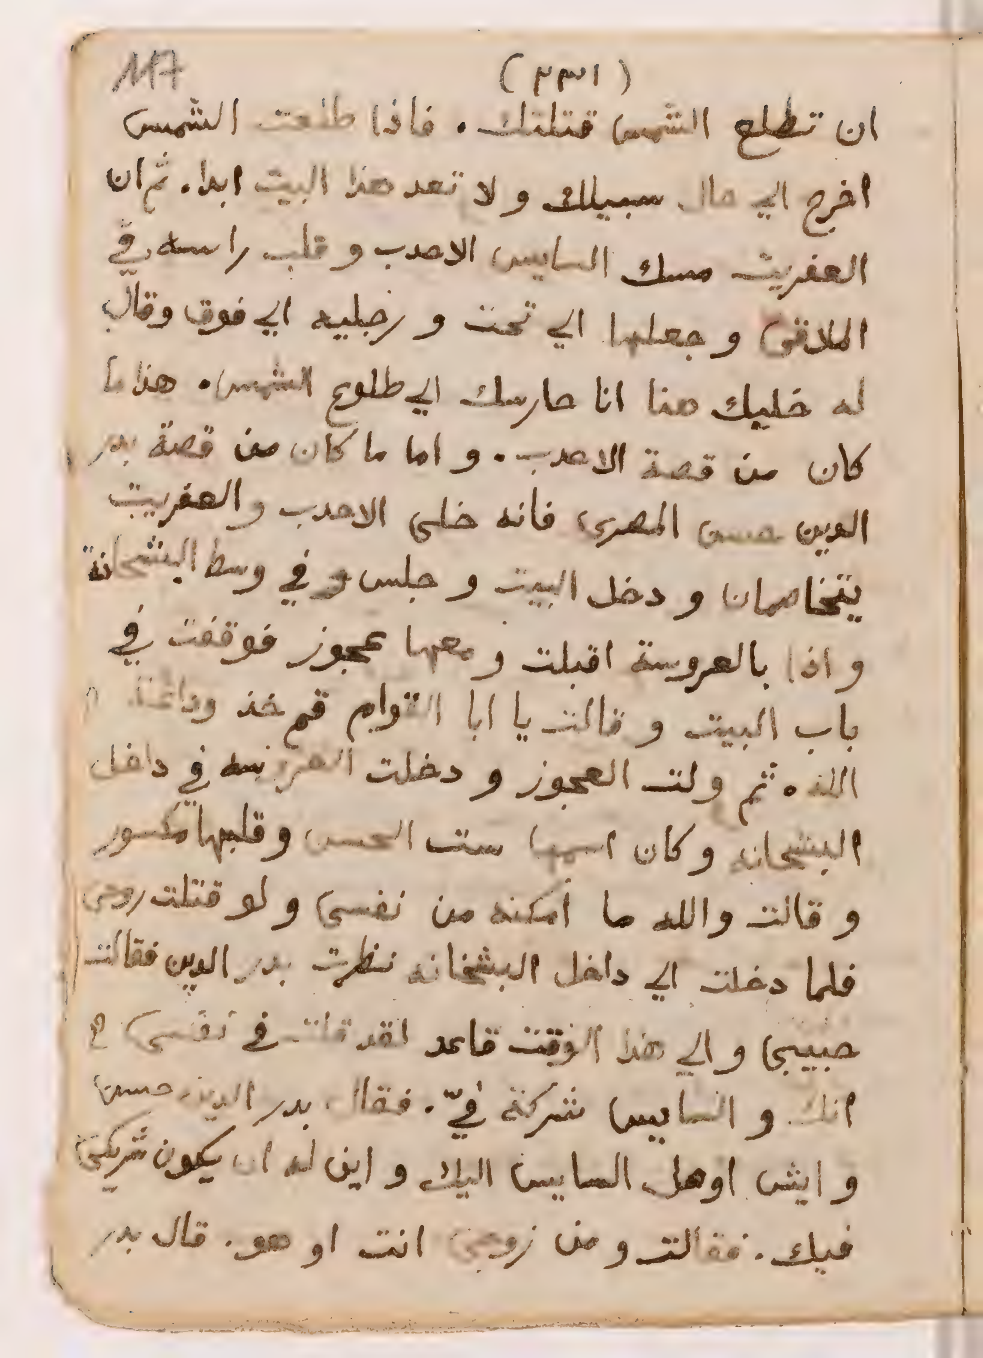 117
(٢٣١)
ان تطلع الشمس قتلتك . فاذا طلعت الشمس
اخرج الي حال سبيلك و لا تعد هذا البيت ابدا . ثم ان
العفريت مسك السايس الاحدب و قلب راسه في
الملاقي و جعلها الي تحت و رجليه الي فوق وقال
له خليك هنا انا حارسك الي طلوع الشمس . هذا ما
كان من قصة الاحدب . و اما ما كان من قصة بدر
الدين حسن المصرى فانه خلى الاحدب و العفريت
يتخاصمان و دخل البيت و جلس في وسط البشخانة
و اذا بالعروسة اقبلت و معها عجوز فوقفت في
باب البيت و قالت يا ابا القوام قم خذ وداعة
الله . ثم ولت العجوز و دخلت العروسه في داخل
البشخانه و كان اسمها ست الحسن و قلبها مكسور
و قالت والله ما امكنه من نفسي و لو قتلت روحى
فلما دخلت الي داخل البشخانه نظرت بدر الدين فقالت
حبيبي و الي هذا الوقت قاعد لقد قلت في نفسي
انك و السايس شركة فيّ . فقال بدر الدين حسن
و ايش اوصل السايس اليك و اين له ان يكون شريكي
فيك . فقالت و من زوجي انت او هو . قال بدر